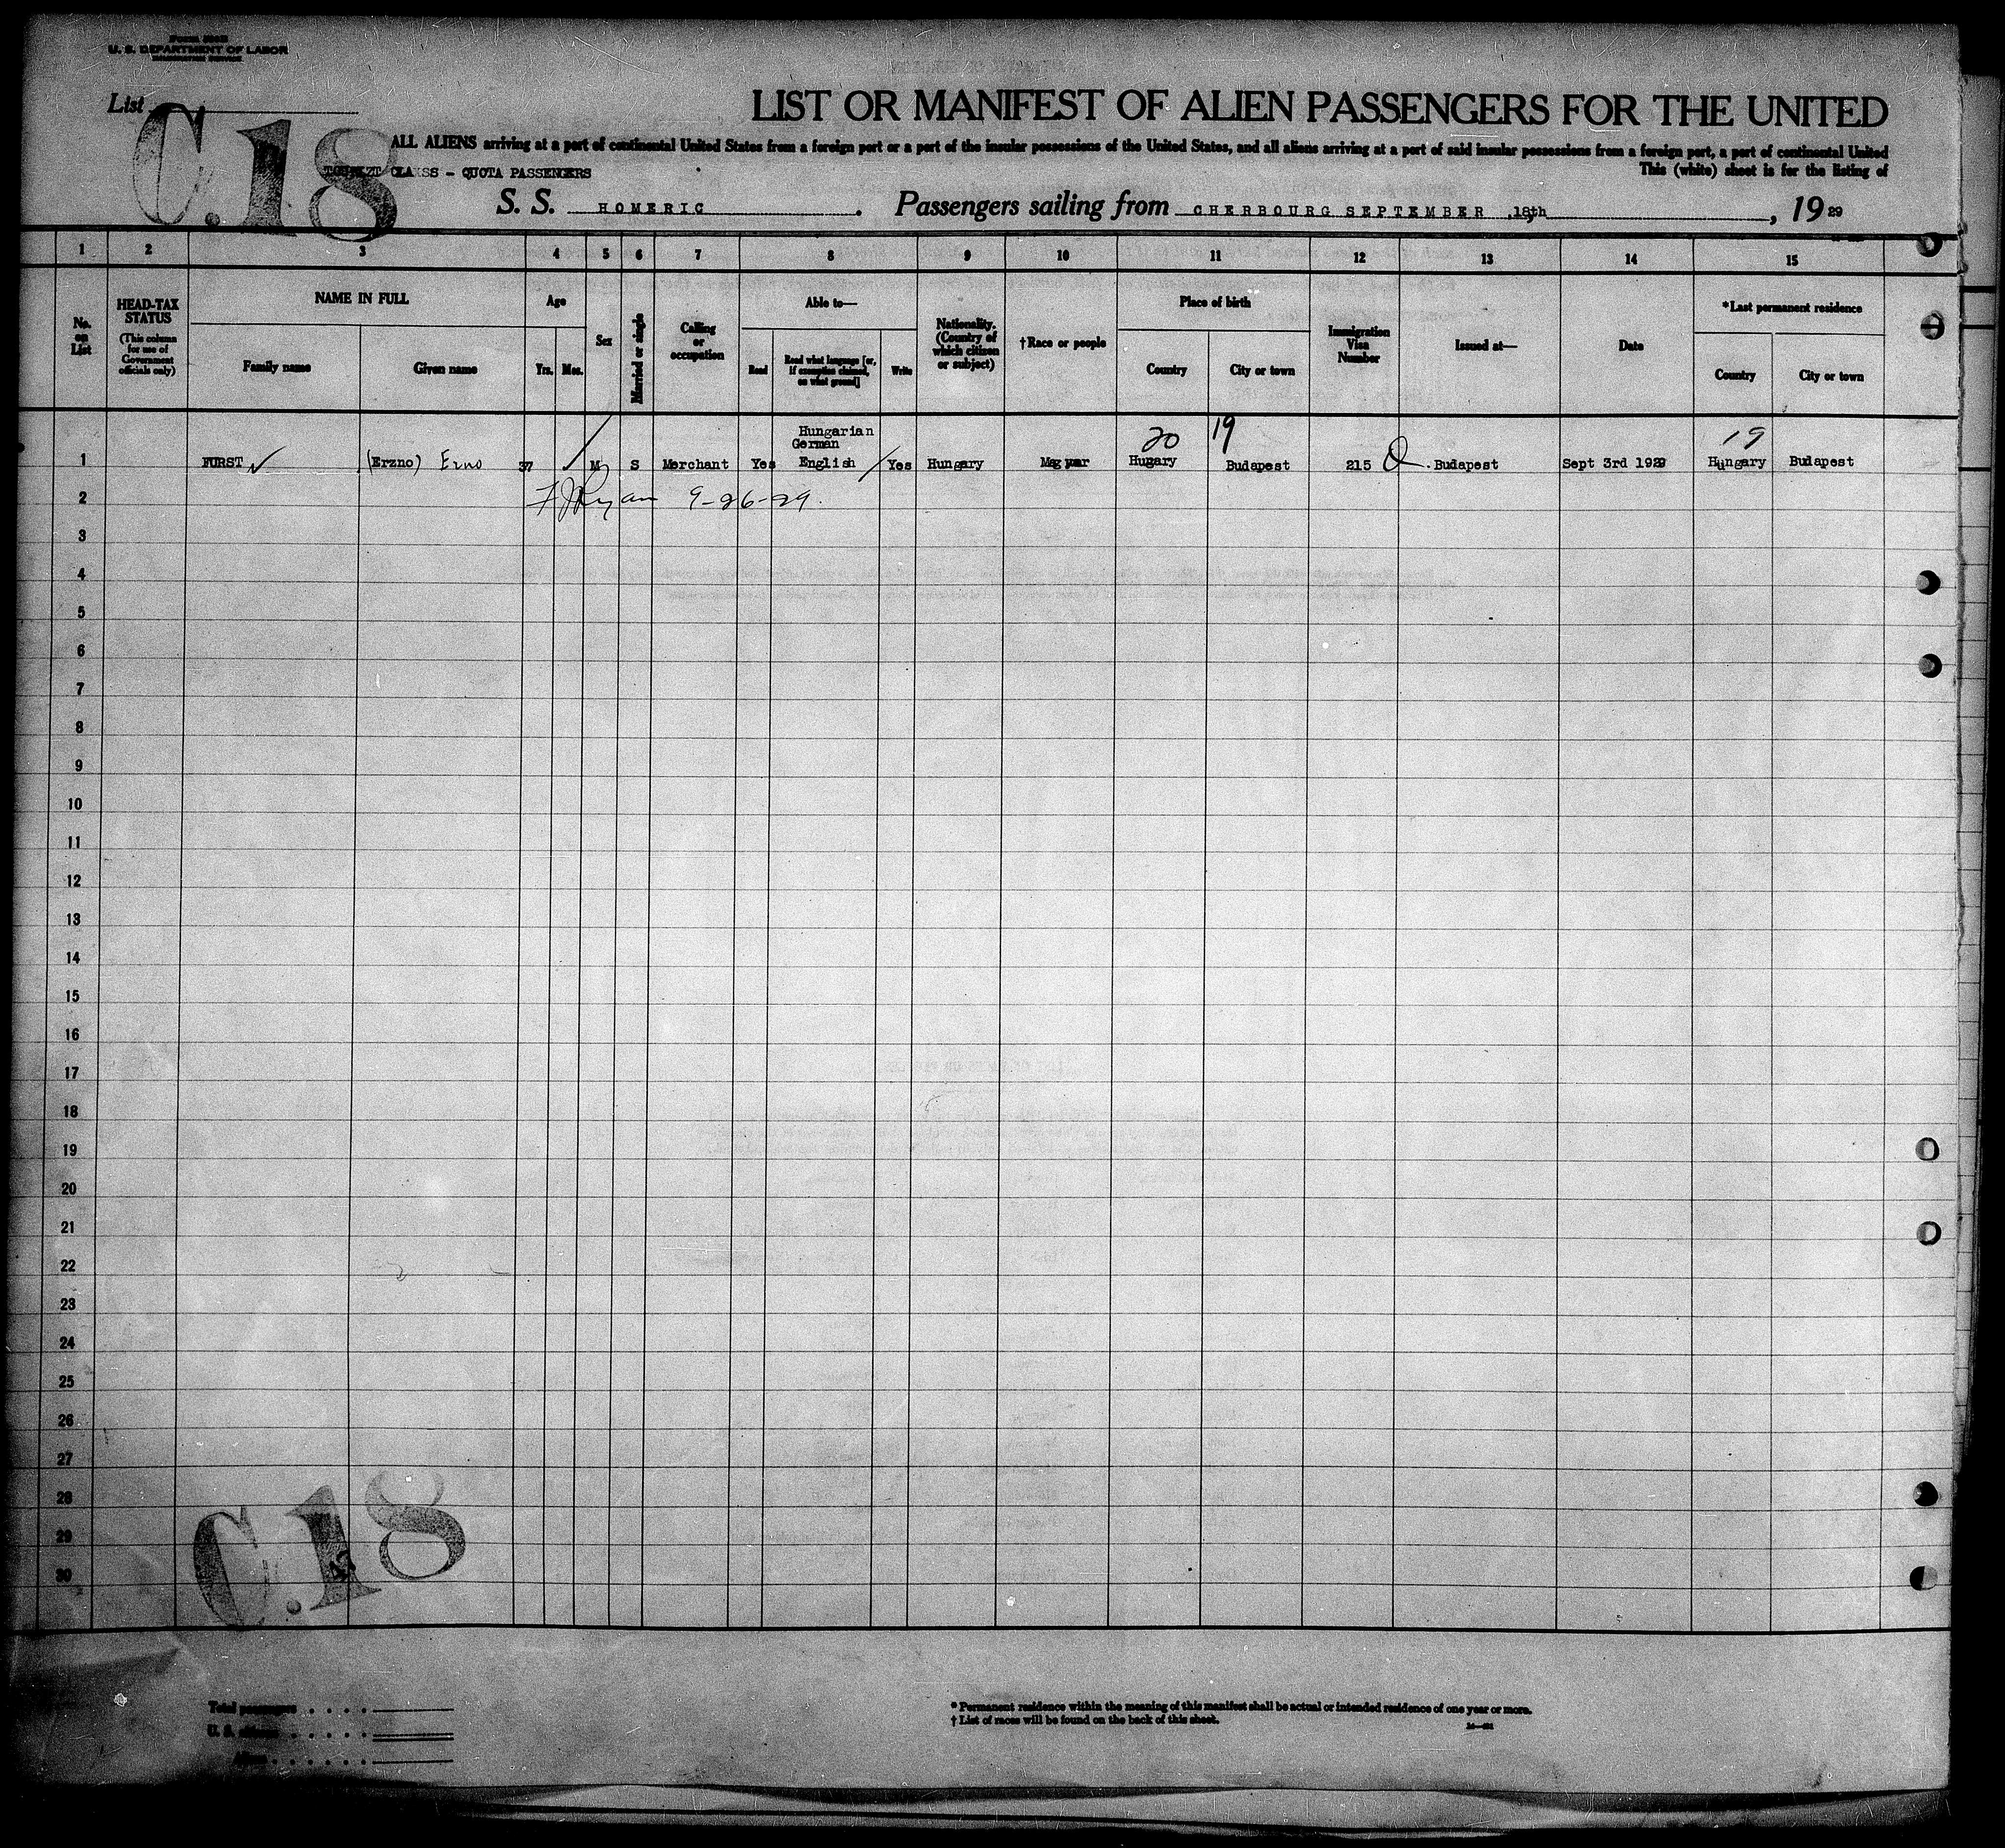 U. S. DEPARTMENT OF LABOR
List
C.18
LIST OR MANIFEST OF ALIEN PASSENGERS FOR THE UNITED
ALL ALIENS arriving at a port of continental United States from a foreign port or a port of the insular possessions of the United States, and all aliens arriving at a port of said insular possessions from a foreign port, a port of continental United
This (white) sheet is for the listing of
QUOTA PASSENGERS
S. S. HOMERIC . Passengers sailing from CHERBOURG SEPTEMBER ,18th , 19 29
1 2 3 4 5 6 7 8 9 10 11 12 13 14 15
No. on List
HEAD-TAX STATUS
(This column for use of Government officials only)
NAME IN FULL
Family name
Given name
Age
Yrs. Mos.
Sex
Married or single
Calling or occupation
Able to—
Read
Read what language [or, if exemption claimed, on what ground]
Write
Nationality. (Country of which citizen or subject)
†Race or people
Place of birth
Country
City or town
Immigration Visa Number
Issued at—
Date
*Last permanent residence
Country
City or town
Hungarian
German 20 19 19
1 FURST (Erzno) Erno 37 M S Merchant Yes English Yes Hungary Magyar Hugary Budapest 215 Budapest Sept 3rd 1929 Hungary Budapest
2 F J Ryan 9-26-29.
3
4
5
6
7
8
9
10
11
12
13
14
15
16
17
18
19
20
21
22
23
24
25
26
27
28
29
30
C.18
Total passengers
U. S. citizens
Aliens
* Permanent residence within the meaning of this manifest shall be actual or intended residence of one year or more.
† List of races will be found on the back of this sheet.